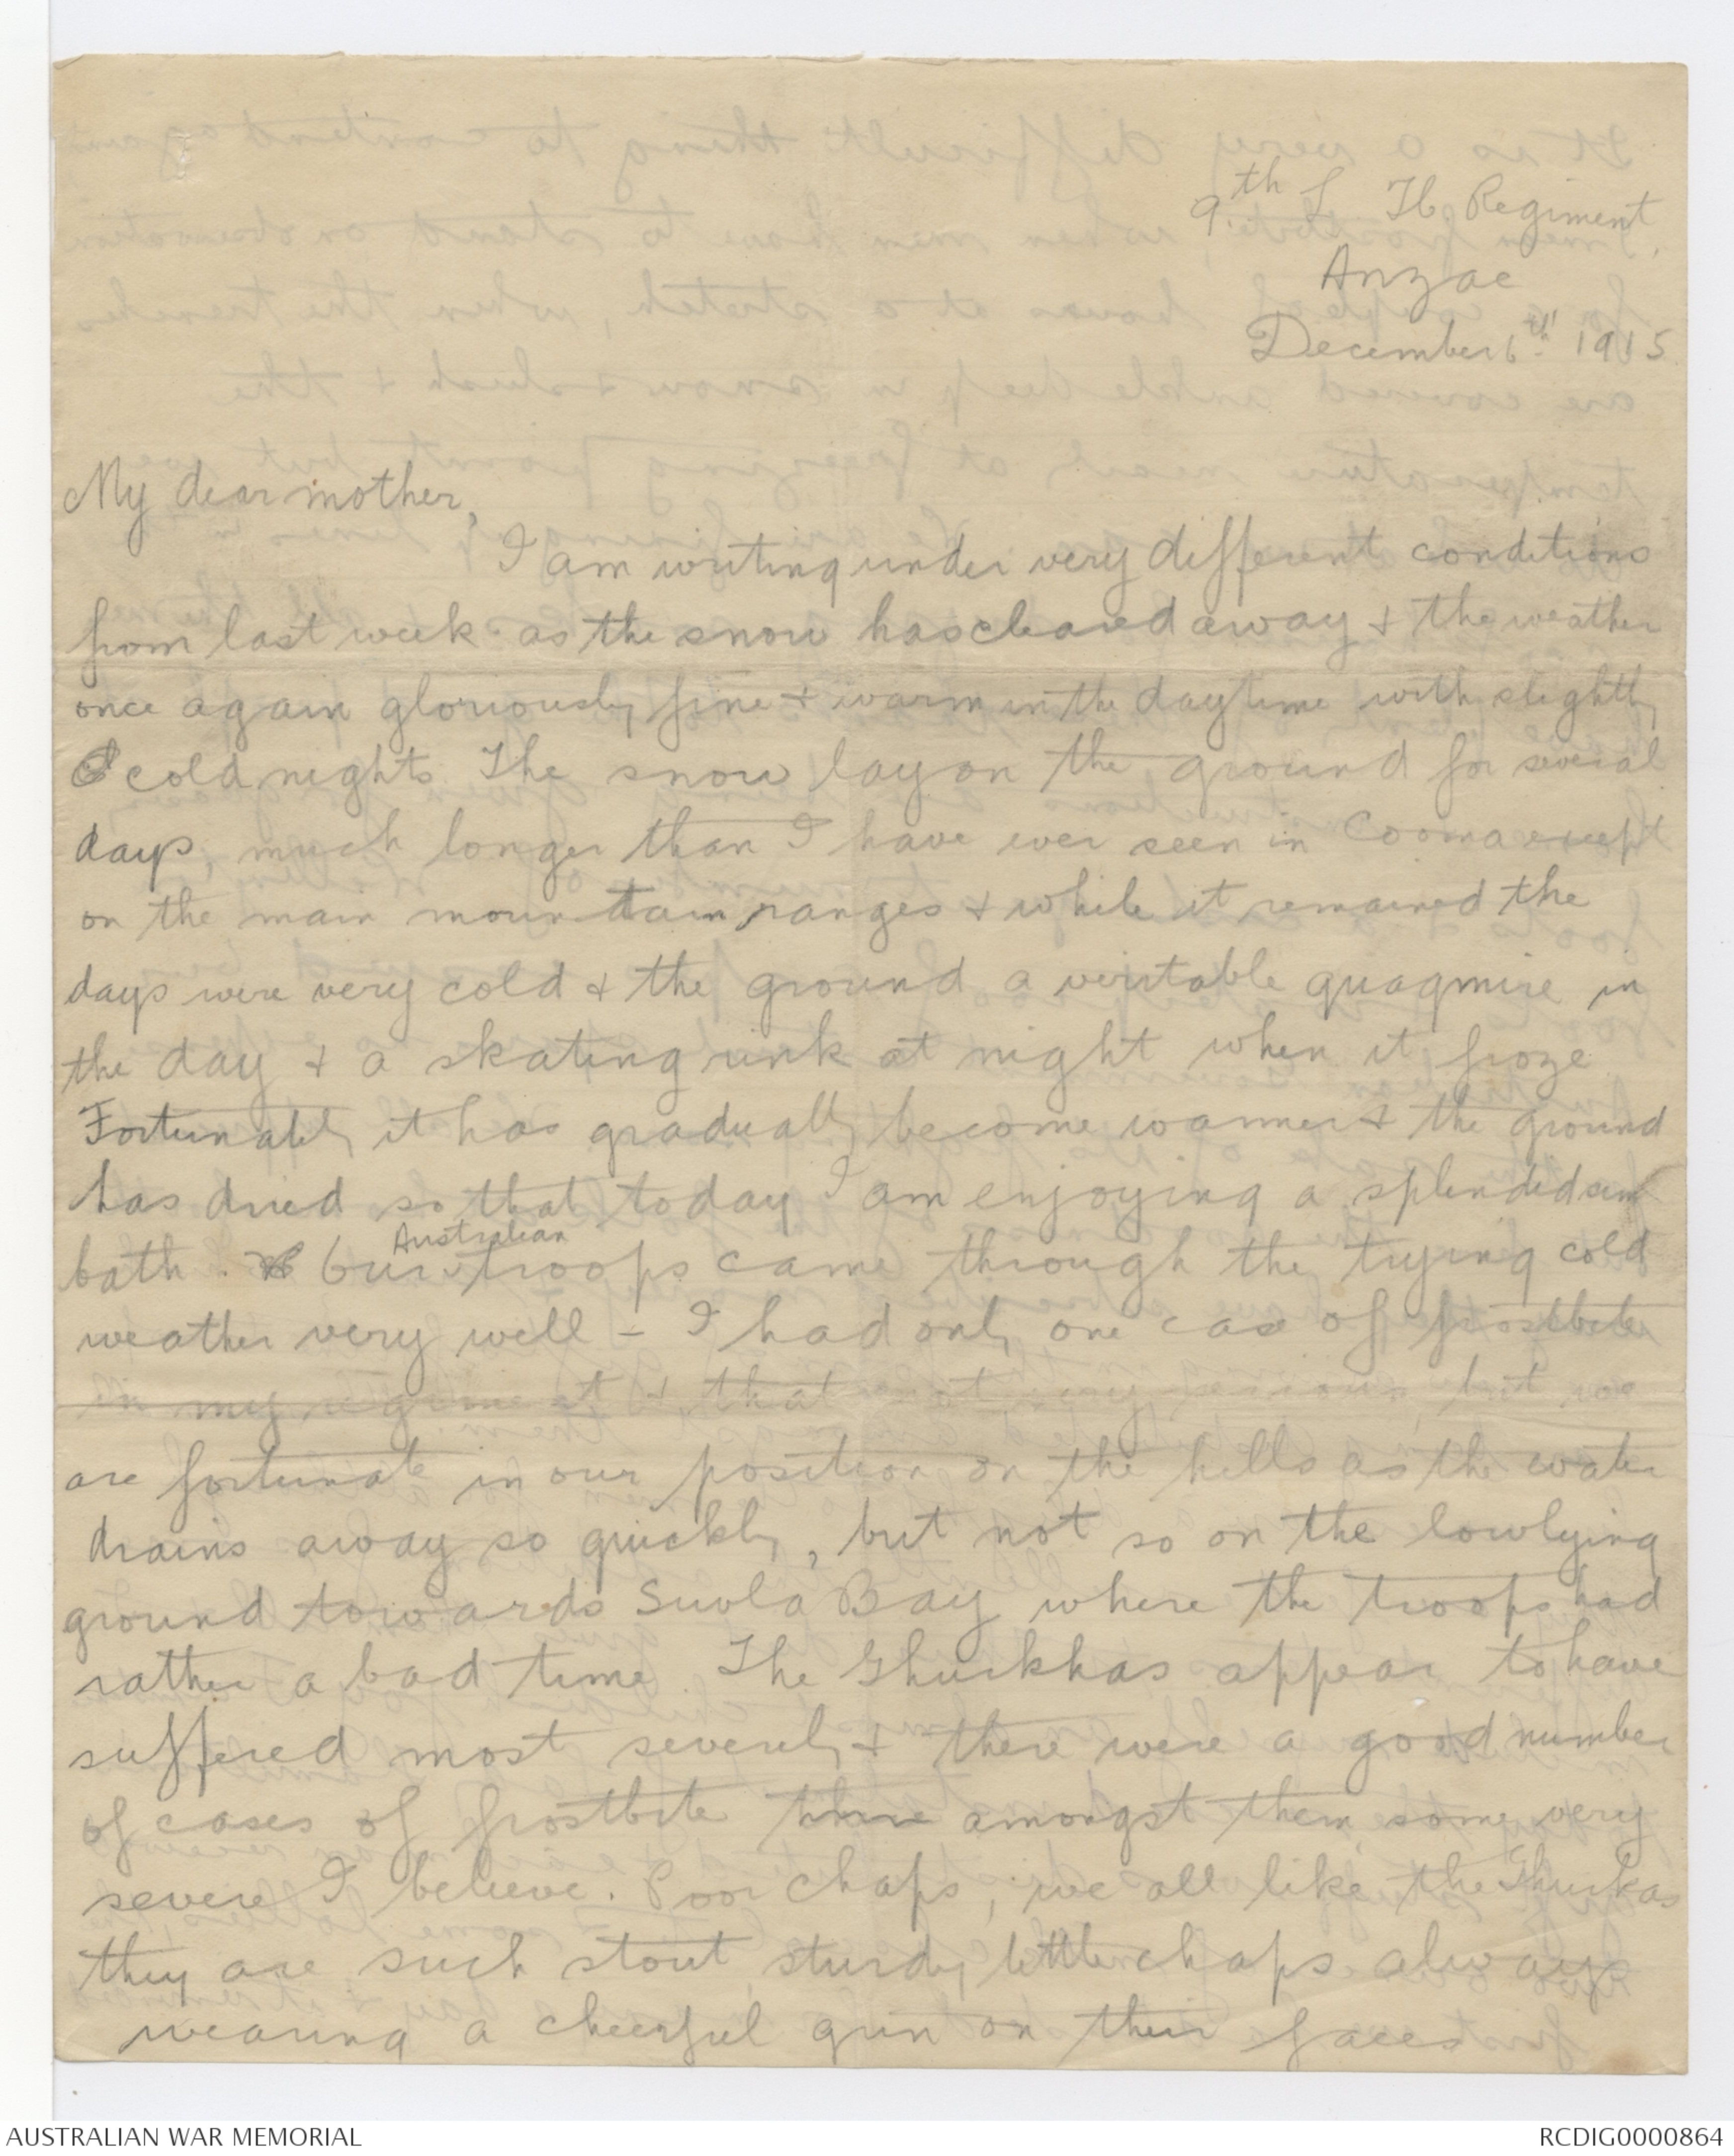 9th L H Regiment,
Anzac
December 6th 1915
My dear mother,
I am writing under very different conditions
from last week as the snow has cleared away & the weather
once again gloriously fine & warm in the daytime with slightly
cold nights. The snow lay on the ground for several
days, much longer than I have ever seen in Cooma except
on the main mountain ranges & while it remained the
days were very cold & the ground a veritable quagmire in
the day & a skating rink at night when it froze
Fortunately it has gradually become warmer & the ground
has dried so that today I am enjoying a splendid sun
bath. Our Australian troops came through the trying cold
weather very well - I had only one case of frostbite
in my regiment & that not very serious, but we
are fortunate in our position on the hills as the water
drains away so quickly, but not so on the lowlying
ground towards Suvla Bay where the troops had
rather a bad time. The Ghurkhas appear to have
suffered most severely & there were a good number
of cases of frostbite there amongst them, some very
severe I believe. Poor chaps, we all like the Ghurkas
they are such stout sturdy little chaps always
wearing a cheerful grin on their faces
AUSTRALIAN WAR MEMORIAL
RCDIG0000864